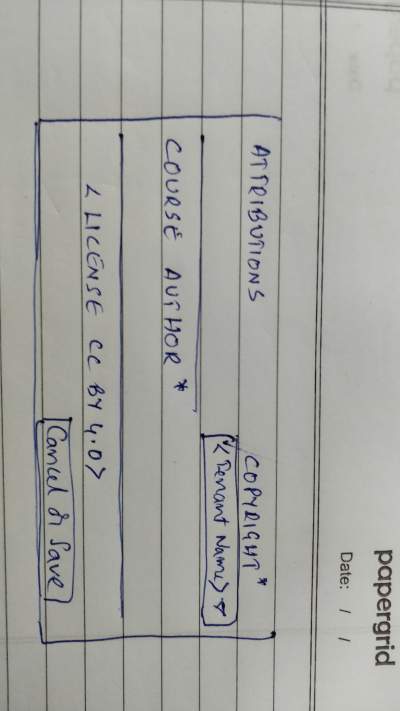 papergrid
Date: / /
ATTRIBUTIONS COPYRIGHT*
<Tenant Name>
COURSE AUTHOR*
< LICENSE CC BY 4.0>
Cancel & Save